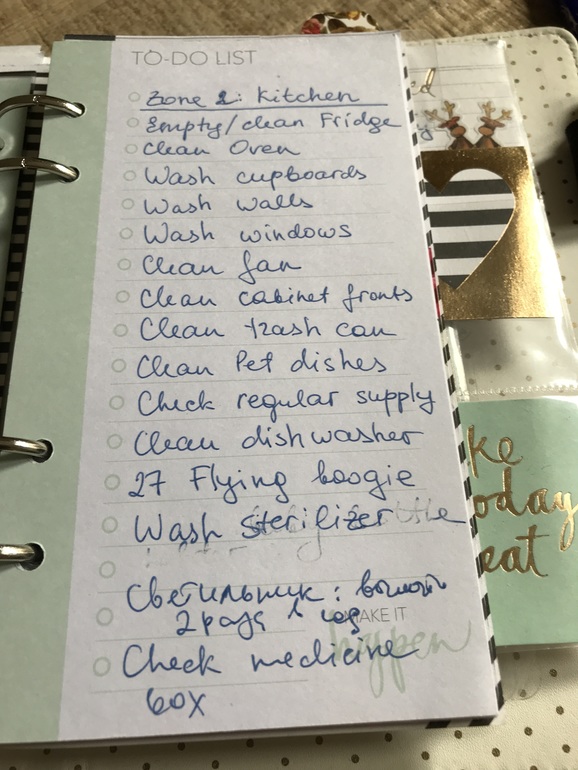 TO-DO LIST
Zone 2: Kitchen
Empty/clean Fridge
Clean Oven
Wash cupboards
Wash walls
Wash windows
Clean fan
Clean cabinet fronts
Clean trash can
Clean Pet dishes
Check regular supply
Clean dishwasher
27 Flying boogie
Wash sterilizer
Светильник:
2 раза в
MAKE IT
happen
Check medicine
box
oday
eat